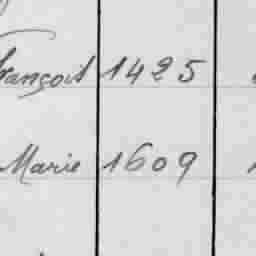 François 1425
Marie 1609